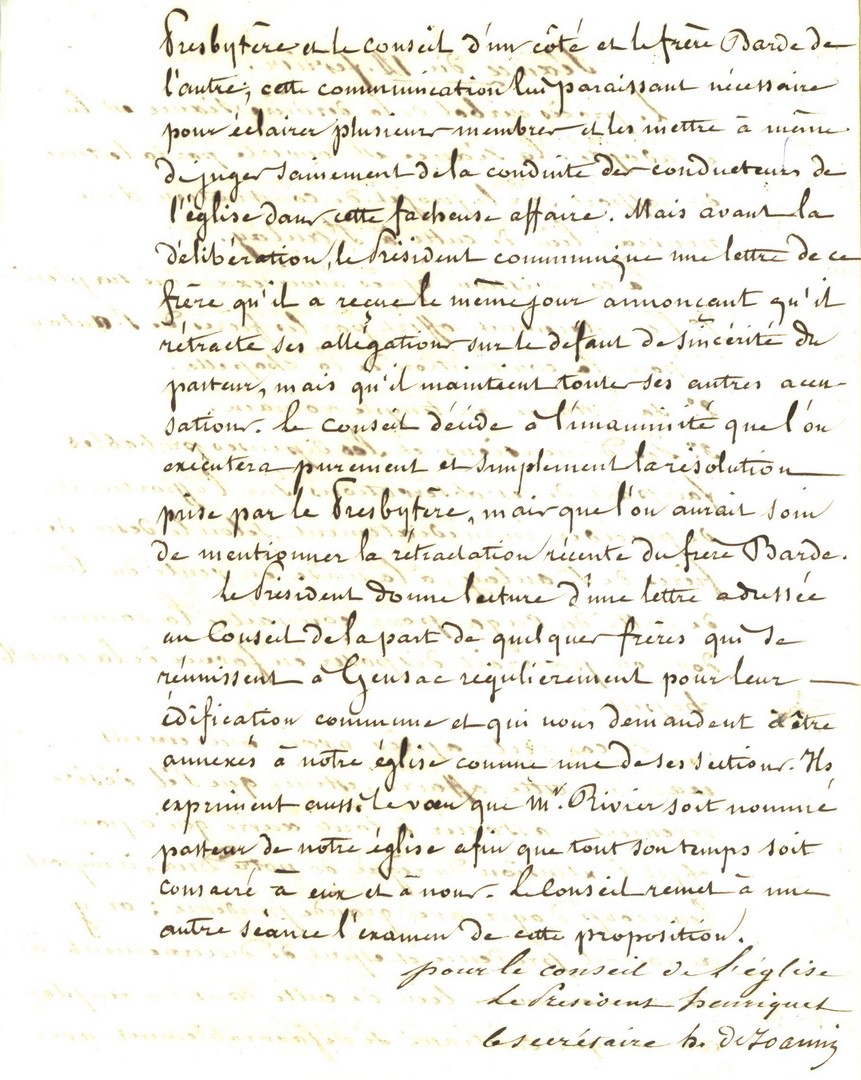 Presbytère et le conseil d'un côté et le frère Barde de
l'autre, cette communication lui paraissant nécessaire
pour éclairer plusieurs membres et les mettre à même
de juger sainement de la conduite des conducteurs de
l'église dans cette facheuse affaire. Mais avant la
délibération, le Président communique une lettre de ce
frère qu'il a reçue le même jour annonçant qu'il
rétracte ses allégations sur le défaut de sincérité du
pasteur, mais qu'il maintient toutes ses autres accu-
sations. Le Conseil décide à l'unanimité que l'on
exécutera purement et simplement la résolution
prise par le Presbytère, mais que l'on aurait soin
de mentionner la rétractation récente du frère Barde.
Le Président donne lecture d'une lettre adressée
au Conseil de la part de quelques frères qui se
réunissent à Gensac régulièrement pour leur
édification commune et qui nous demandent d'être
annexés à notre église comme une de ses sections. Ils
expriment aussi le vœu que Mr. Rivier soit nommé
pasteur de notre église afin que tout son temps soit
consacré à eux et à nous. Le Conseil remet à une
autre séance l'examen de cette proposition.
pour le conseil de l'église
Le President henriquet
le secrétaire h. de Joannis